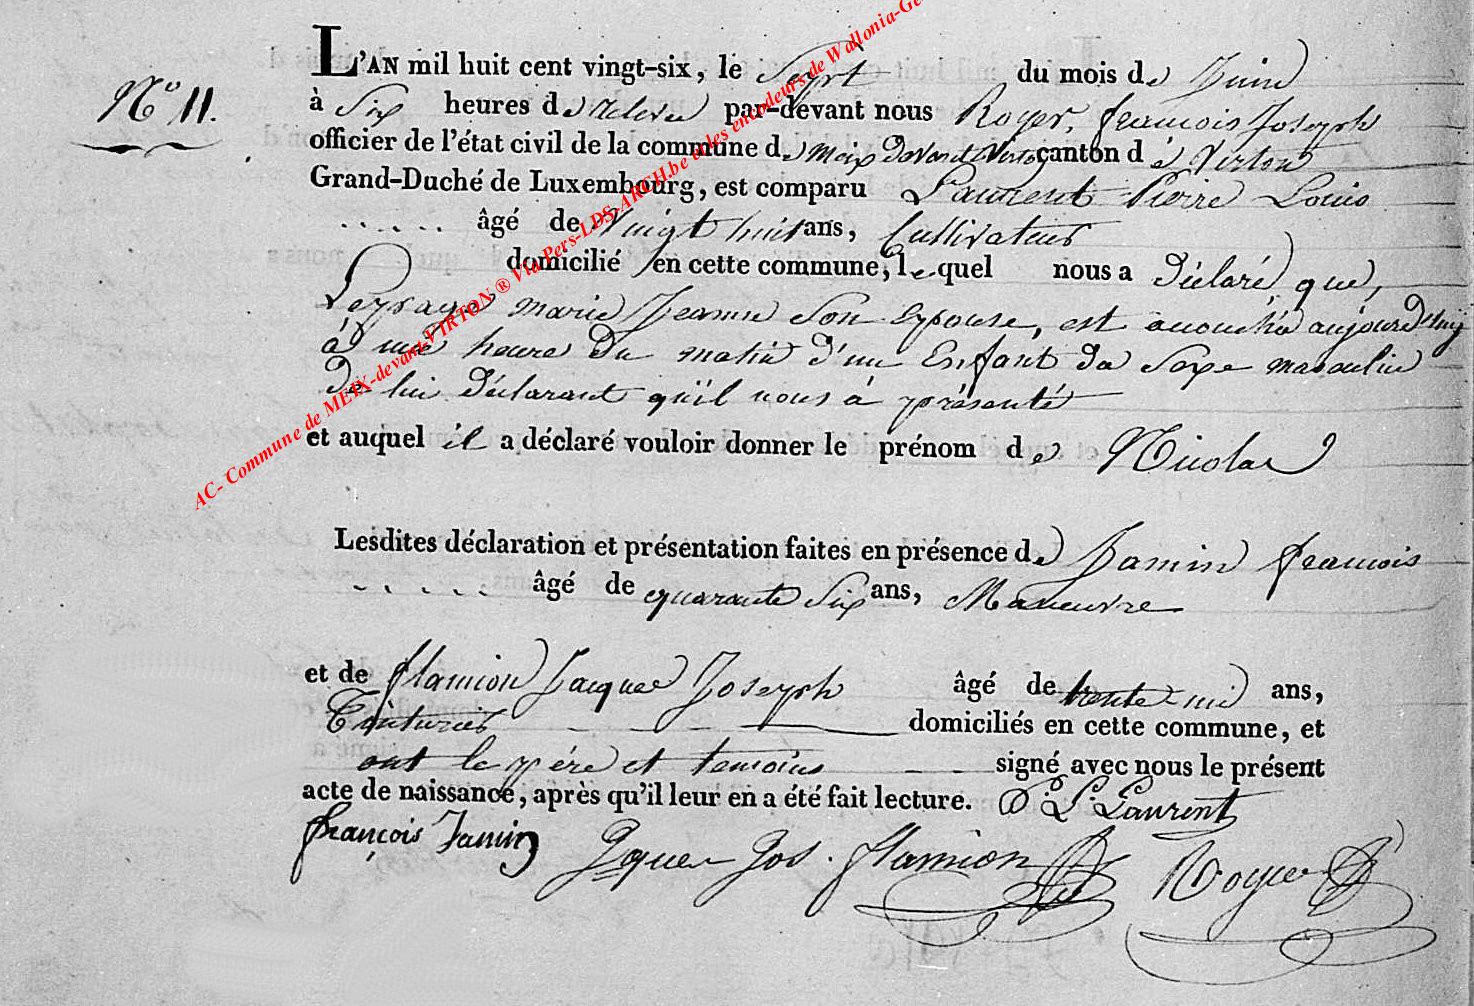 N° 11.
L'AN mil huit cent vingt-six, le Sept du mois de Juin
à Six heures de relevée par-devant nous Royer, françois Joseph
officier de l'état civil de la commune de Meix devant Virton canton de Virton
Grand-Duché de Luxembourg, est comparu Laurent Pierre Louis
...... âgé de Vingt huit ans, Cultivateur
domicilié en cette commune, lequel nous a Déclaré que,
Lepage marie Jeanne Son Epouse, est accouchée aujourd'huy
à une heure du matin d'un Enfant du Sexe masculin
De lui Déclarant qu'il nous à présenté
et auquel il a déclaré vouloir donner le prénom de Nicolas
Lesdites déclaration et présentation faites en présence de Jamin francois
...... âgé de quarante Six ans, Maneuvre
et de flamion Jacques Joseph âgé de trente ans,
domiciliés en cette commune, et
ont le père et temoins signé avec nous le présent
acte de naissance, après qu'il leur en a été fait lecture. P. L. Laurent
françois Jamin Jques Jos. flamion Royer
AC- Commune de MEIX-devant-VIRTON ® Via Pers-LDS-ARCH.be et les encodeurs de Wallonia-Ge